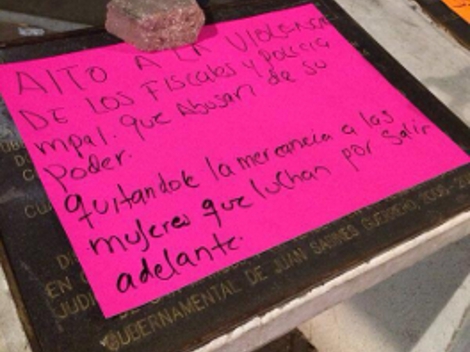 ALTO A LA VIOLENCIA
DE LOS FISCALES Y POLICIA
mpal. que Abusan de su
Poder.
quitandole la mercancia a las
mujeres que luchan por salir
adelante.
EN
JUDI
GUBERNAMENTAL DE JUAN SABINES GUERRERO, 2006-20